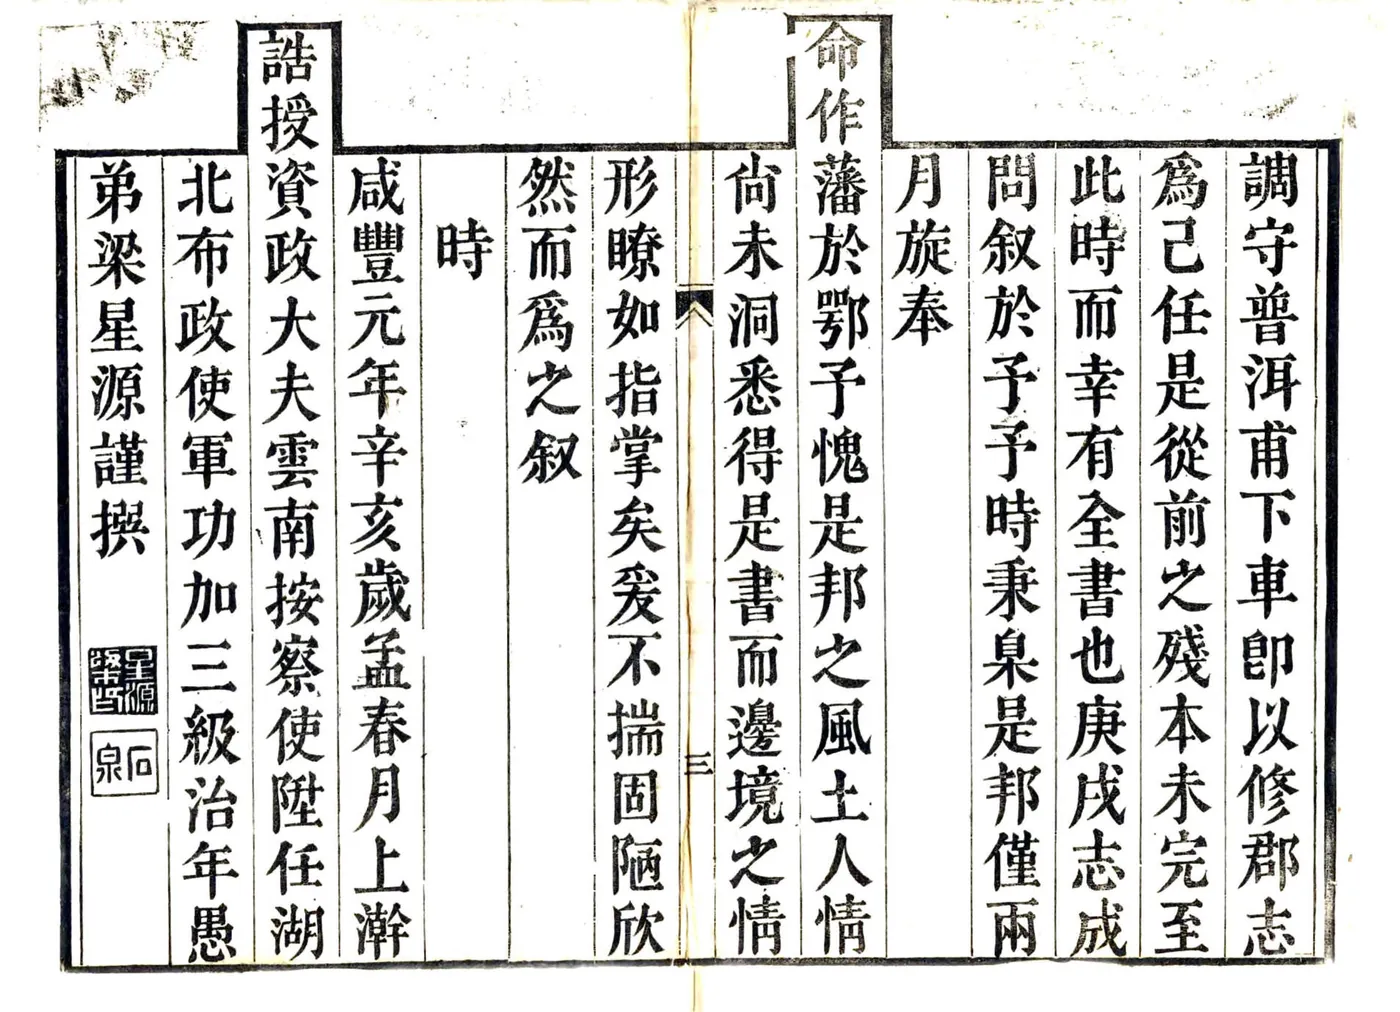 調守普洱甫下車卽以修郡志
爲己任是從前之殘本未完至
此時而幸有全書也庚戌志成
問叙於予予時秉臬是邦僅兩
月旋奉
命作藩於鄂予愧是邦之風土人情
尙未洞悉得是書而邊境之情
三
形瞭如指掌矣爰不揣固陋欣
然而爲之叙
時
咸豐元年辛亥歲孟春月上澣
誥授資政大夫雲南按察使陞任湖
北布政使軍功加三級治年愚
弟梁星源謹撰
星源
石泉